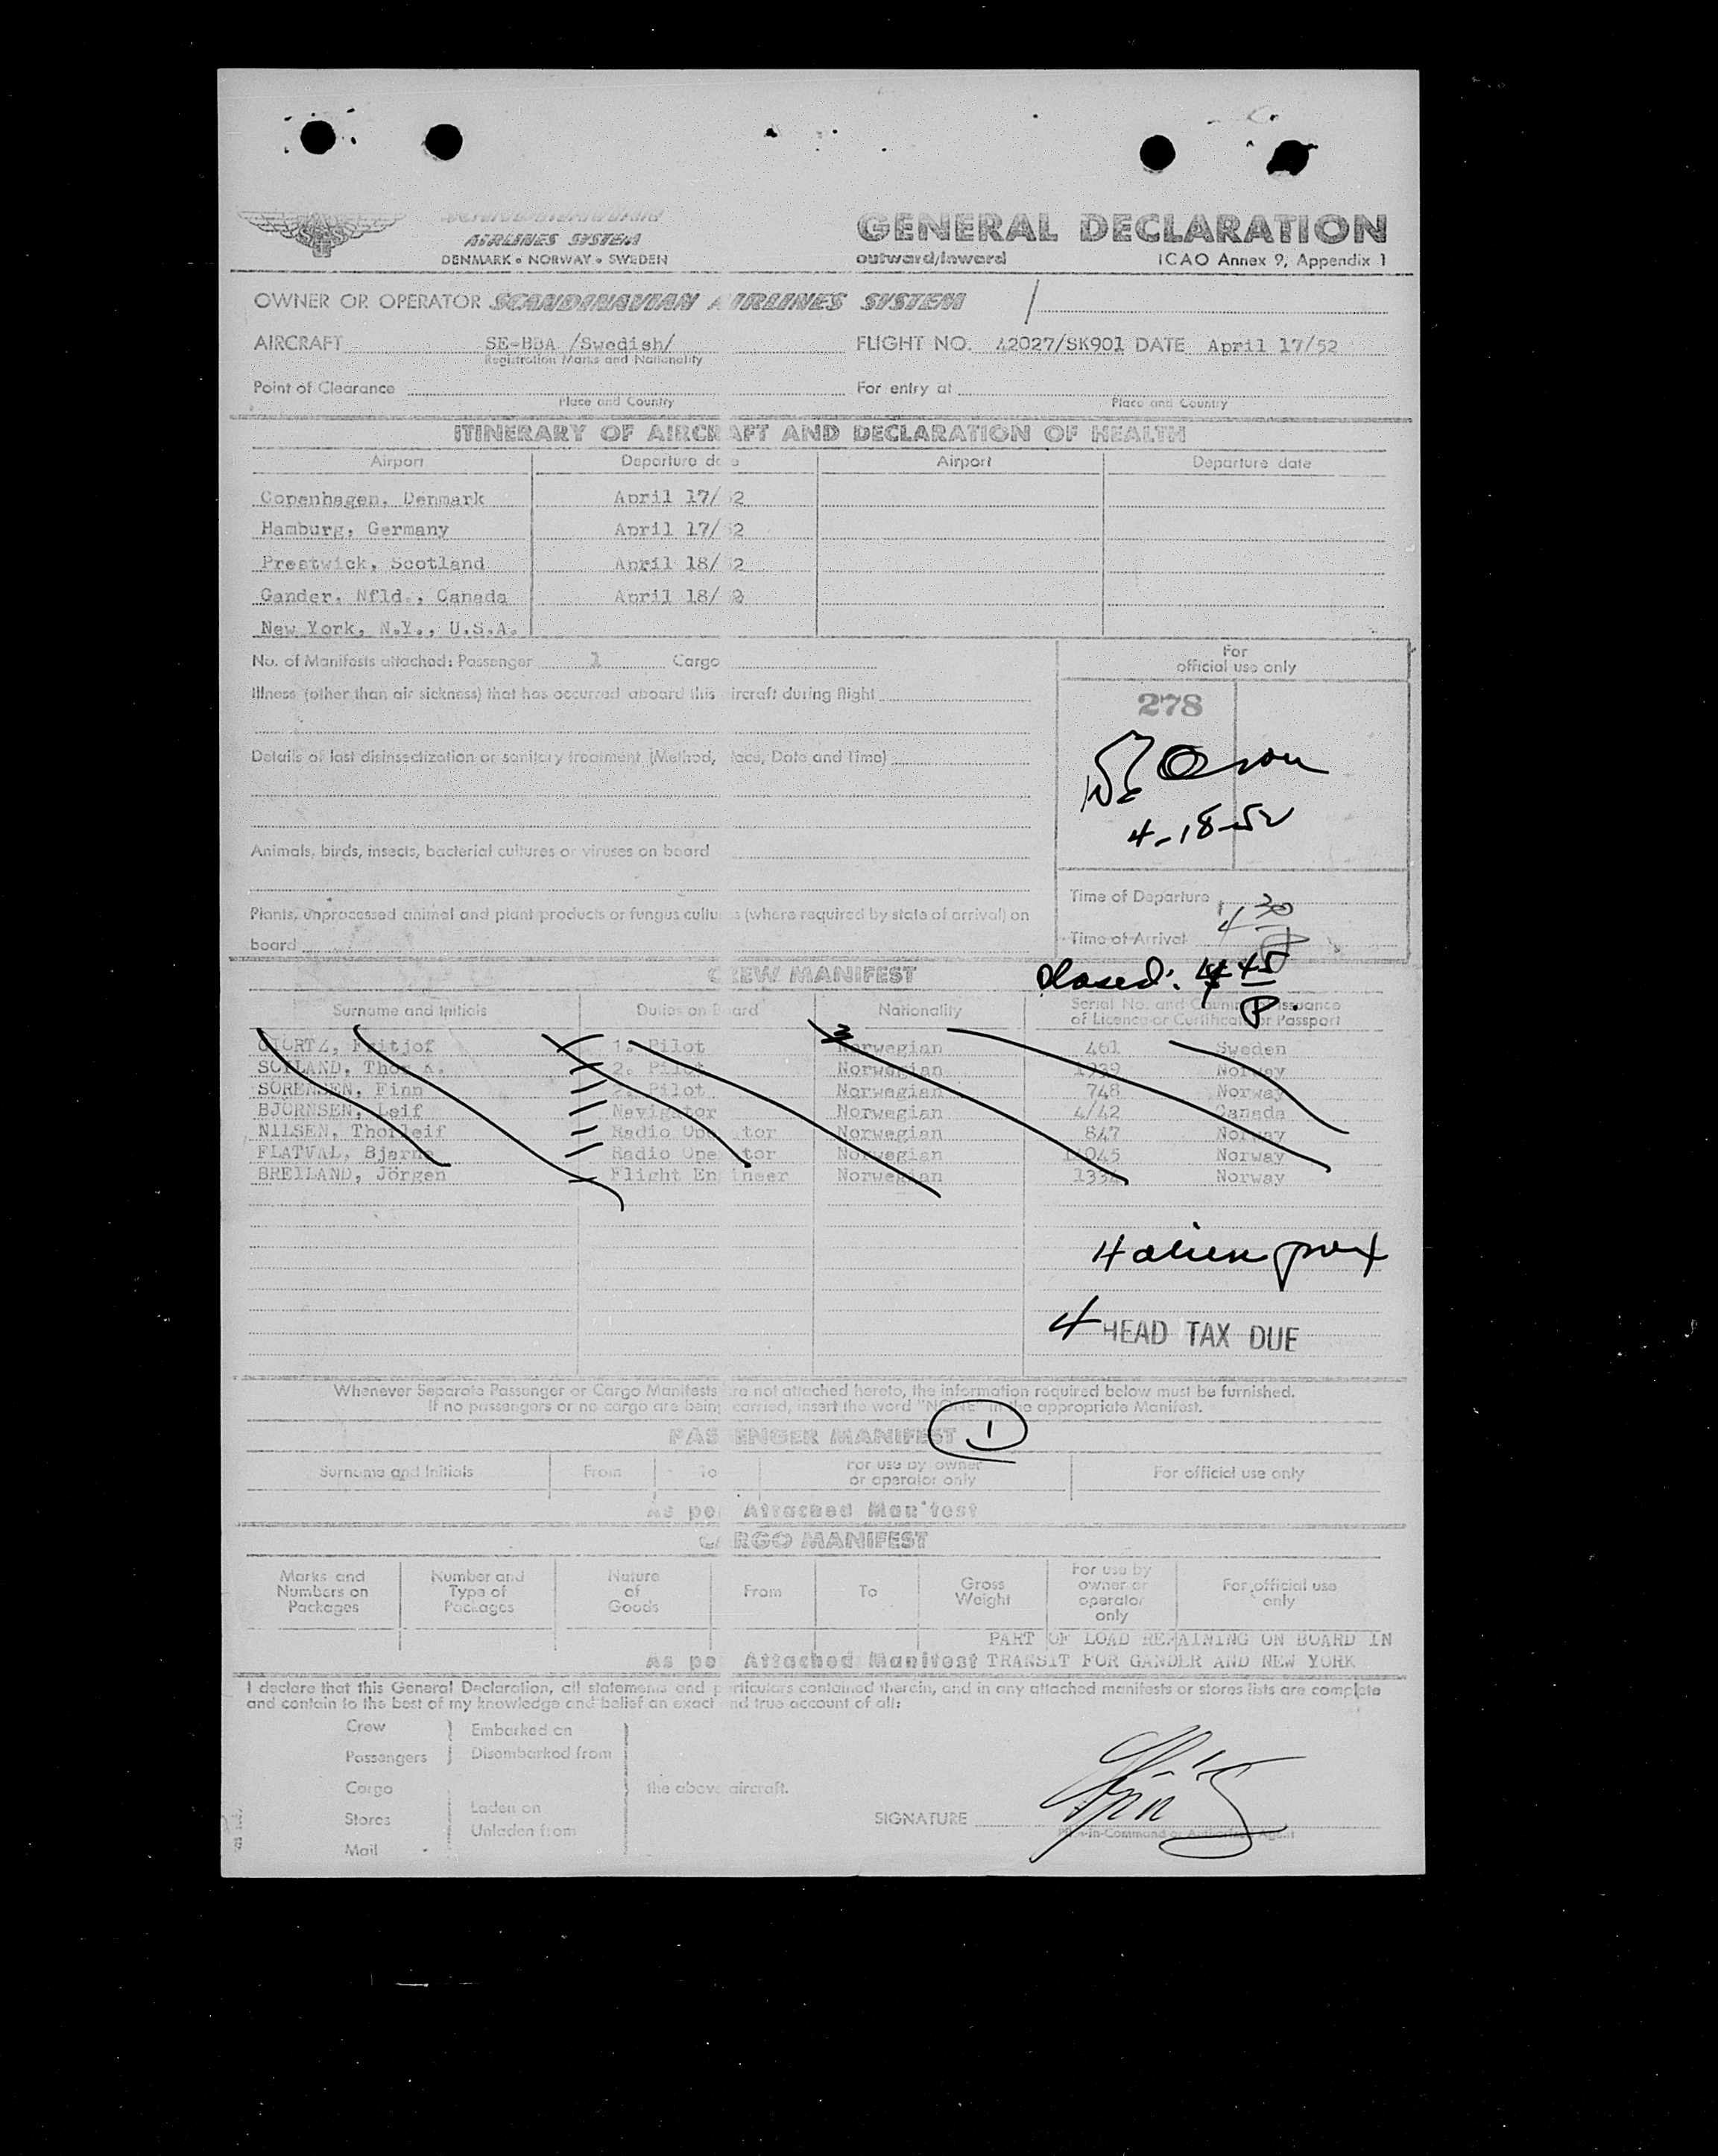 SCANDINAVIAN
AIRLINES SYSTEM
DENMARK • NORWAY • SWEDEN
GENERAL DECLARATION
outward/inward ICAO Annex 9, Appendix 1
OWNER OR OPERATOR SCANDINAVIAN AIRLINES SYSTEM
AIRCRAFT SE-BBA /Swedish/ FLIGHT NO. 42027/SK901 DATE April 17/52
Registration Marks and Nationality
Point of Clearance For entry at
Place and Country Place and Country
ITINERARY OF AIRCRAFT AND DECLARATION OF HEALTH
Airport Departure date Airport Departure date
Copenhagen, Denmark April 17/52
Hamburg, Germany April 17/52
Prestwick, Scotland April 18/52
Gander, Nfld., Canada April 18/52
New York, N.Y., U.S.A.
No. of Manifests attached: Passenger 1 Cargo
For
official use only
Illness (other than air sickness) that has occurred aboard this aircraft during flight
278
Details of last disinsectization or sanitary treatment (Method, Place, Date and Time)
4-18-52
Animals, birds, insects, bacterial cultures or viruses on board
Time of Departure
Plants, unprocessed animal and plant products or fungus cultures (where required by state of arrival) on
board
Time of Arrival 4 30
Closed: 4 45
P.
CREW MANIFEST
Surname and Initials Duties on Board Nationality Serial No. and Country of Issuance
of Licence or Certificate or Passport
Fritjof 1. Pilot Norwegian 461 Sweden
Thor 2. Pilot Norwegian 1939 Norway
SORENSEN, Finn Pilot Norwegian 748 Norway
BJORNSEN, Leif Navigator Norwegian 4/42 Canada
NILSEN, Thorleif Radio Operator Norwegian 847 Norway
FLATVAL, Bjarne Radio Operator Norwegian Norway
BREILAND, Jörgen Flight Engineer Norwegian Norway
4 alien
4 HEAD TAX DUE
Whenever Separate Passenger or Cargo Manifests are not attached hereto, the information required below must be furnished.
If no passengers or no cargo are being carried, insert the word "NONE" in the appropriate Manifest.
PASSENGER MANIFEST 1
Surname and Initials From To For use by owner
or operator only For official use only
As per Attached Manifest
CARGO MANIFEST
Marks and
Numbers on
Packages
Number and
Type of
Packages
Nature
of
Goods
From To Gross
Weight
For use by
owner or
operator
only
For official use
only
PART OF LOAD REMAINING ON BOARD IN
As per Attached Manifest TRANSIT FOR GANDER AND NEW YORK
I declare that this General Declaration, all statements and particulars contained therein, and in any attached manifests or stores lists are complete
and contain to the best of my knowledge and belief an exact and true account of all:
Crew Embarked on
Passengers Disembarked from
Cargo the above aircraft.
Stores Laden on
Unladen from
Mail
SIGNATURE
Pilot-in-Command or Authorized Agent